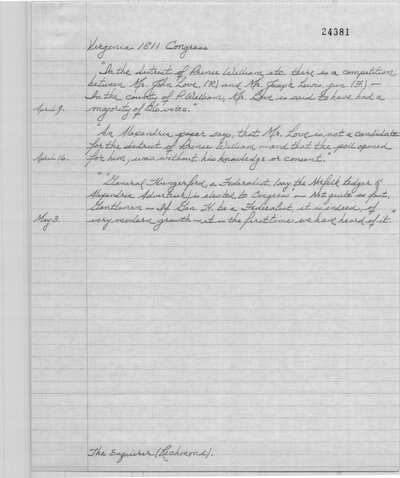 24381
Virginia 1811 Congress
"In the district of Prince William, etc. there is a competition
between Mr. John Love, (R) and Mr. Joseph Lewis, jun. (F) -
In the county of P. William, Mr. Love is said to have had a
April 9. majority of 210 votes."
"An Alexandria paper says, that Mr. Love is not a candidate
for the district of Prince William - and that the poll opened
April 16. for him, was without his knowledge or consent."
"'General Hungerford, a Federalist, (say the Norfolk Ledger &
Alexandria Advertiser) is elected to Congress - Not quite so fast,
Gentleman - If Gen. H. be a Federalist, it is indeed, of
May 3. very modern growth - it is the first time we have heard of it"
The Enquirer (Richmond).